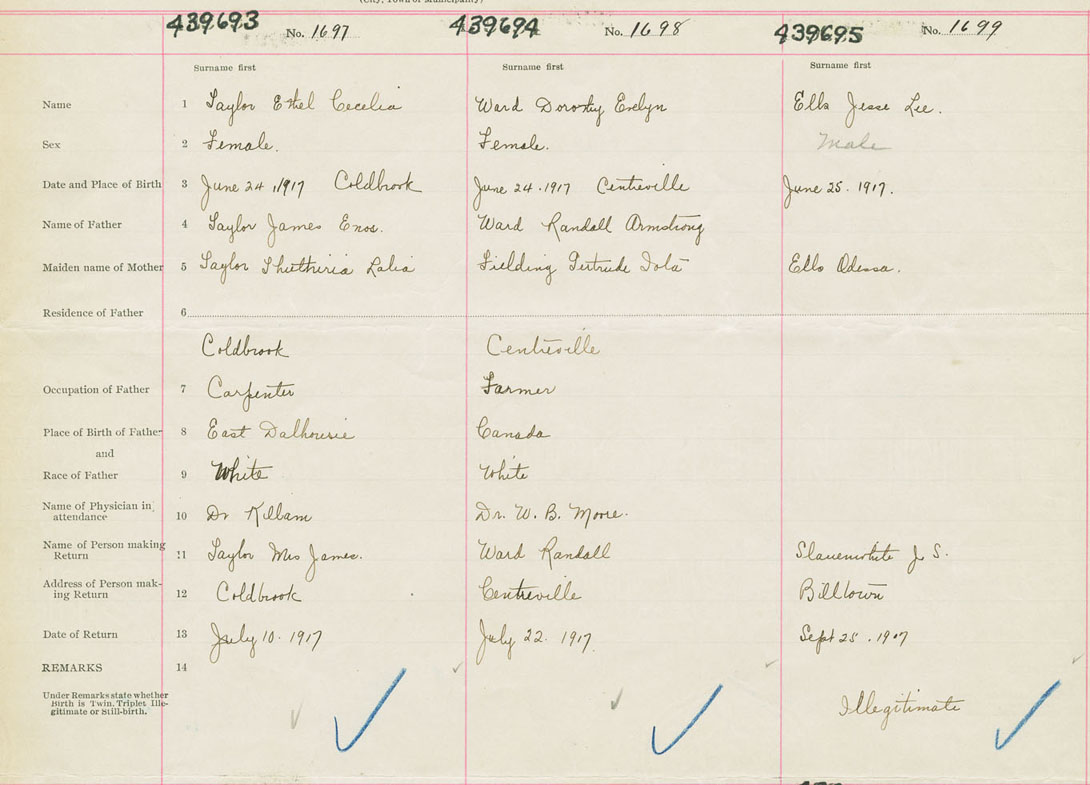 (City, Town or Municipality)
439693 No. 1697 439694 No. 1698 439695 No. 1699
Surname first Surname first Surname first
Name 1 Taylor Ethel Cecelia Ward Dorothy Evelyn Ells Jesse Lee.
Sex 2 Female. Female. Male
Date and Place of Birth 3 June 24, 1917 Coldbrook June 24. 1917 Centreville June 25. 1917.
Name of Father 4 Taylor James Enos. Ward Randall Armstrong
Maiden name of Mother 5 Taylor Lalia Fielding Gertrude Iola Ells Odessa.
Residence of Father 6
Coldbrook Centreville
Occupation of Father 7 Carpenter Farmer
Place of Birth of Father 8 East Dalhousie Canada
and
Race of Father 9 White White
Name of Physician in
attendance 10 Dr Killam Dr. W. B. Moore.
Name of Person making
Return 11 Taylor Mrs James. Ward Randall Slauenwhite J S.
Address of Person mak-
ing Return 12 Coldbrook Centreville Billtown
Date of Return 13 July 10. 1917 July 22. 1917. Sept 25. 1917
REMARKS 14
Under Remarks state whether
Birth is Twin, Triplet Ille-
gitimate or Still-birth. Illegitimate